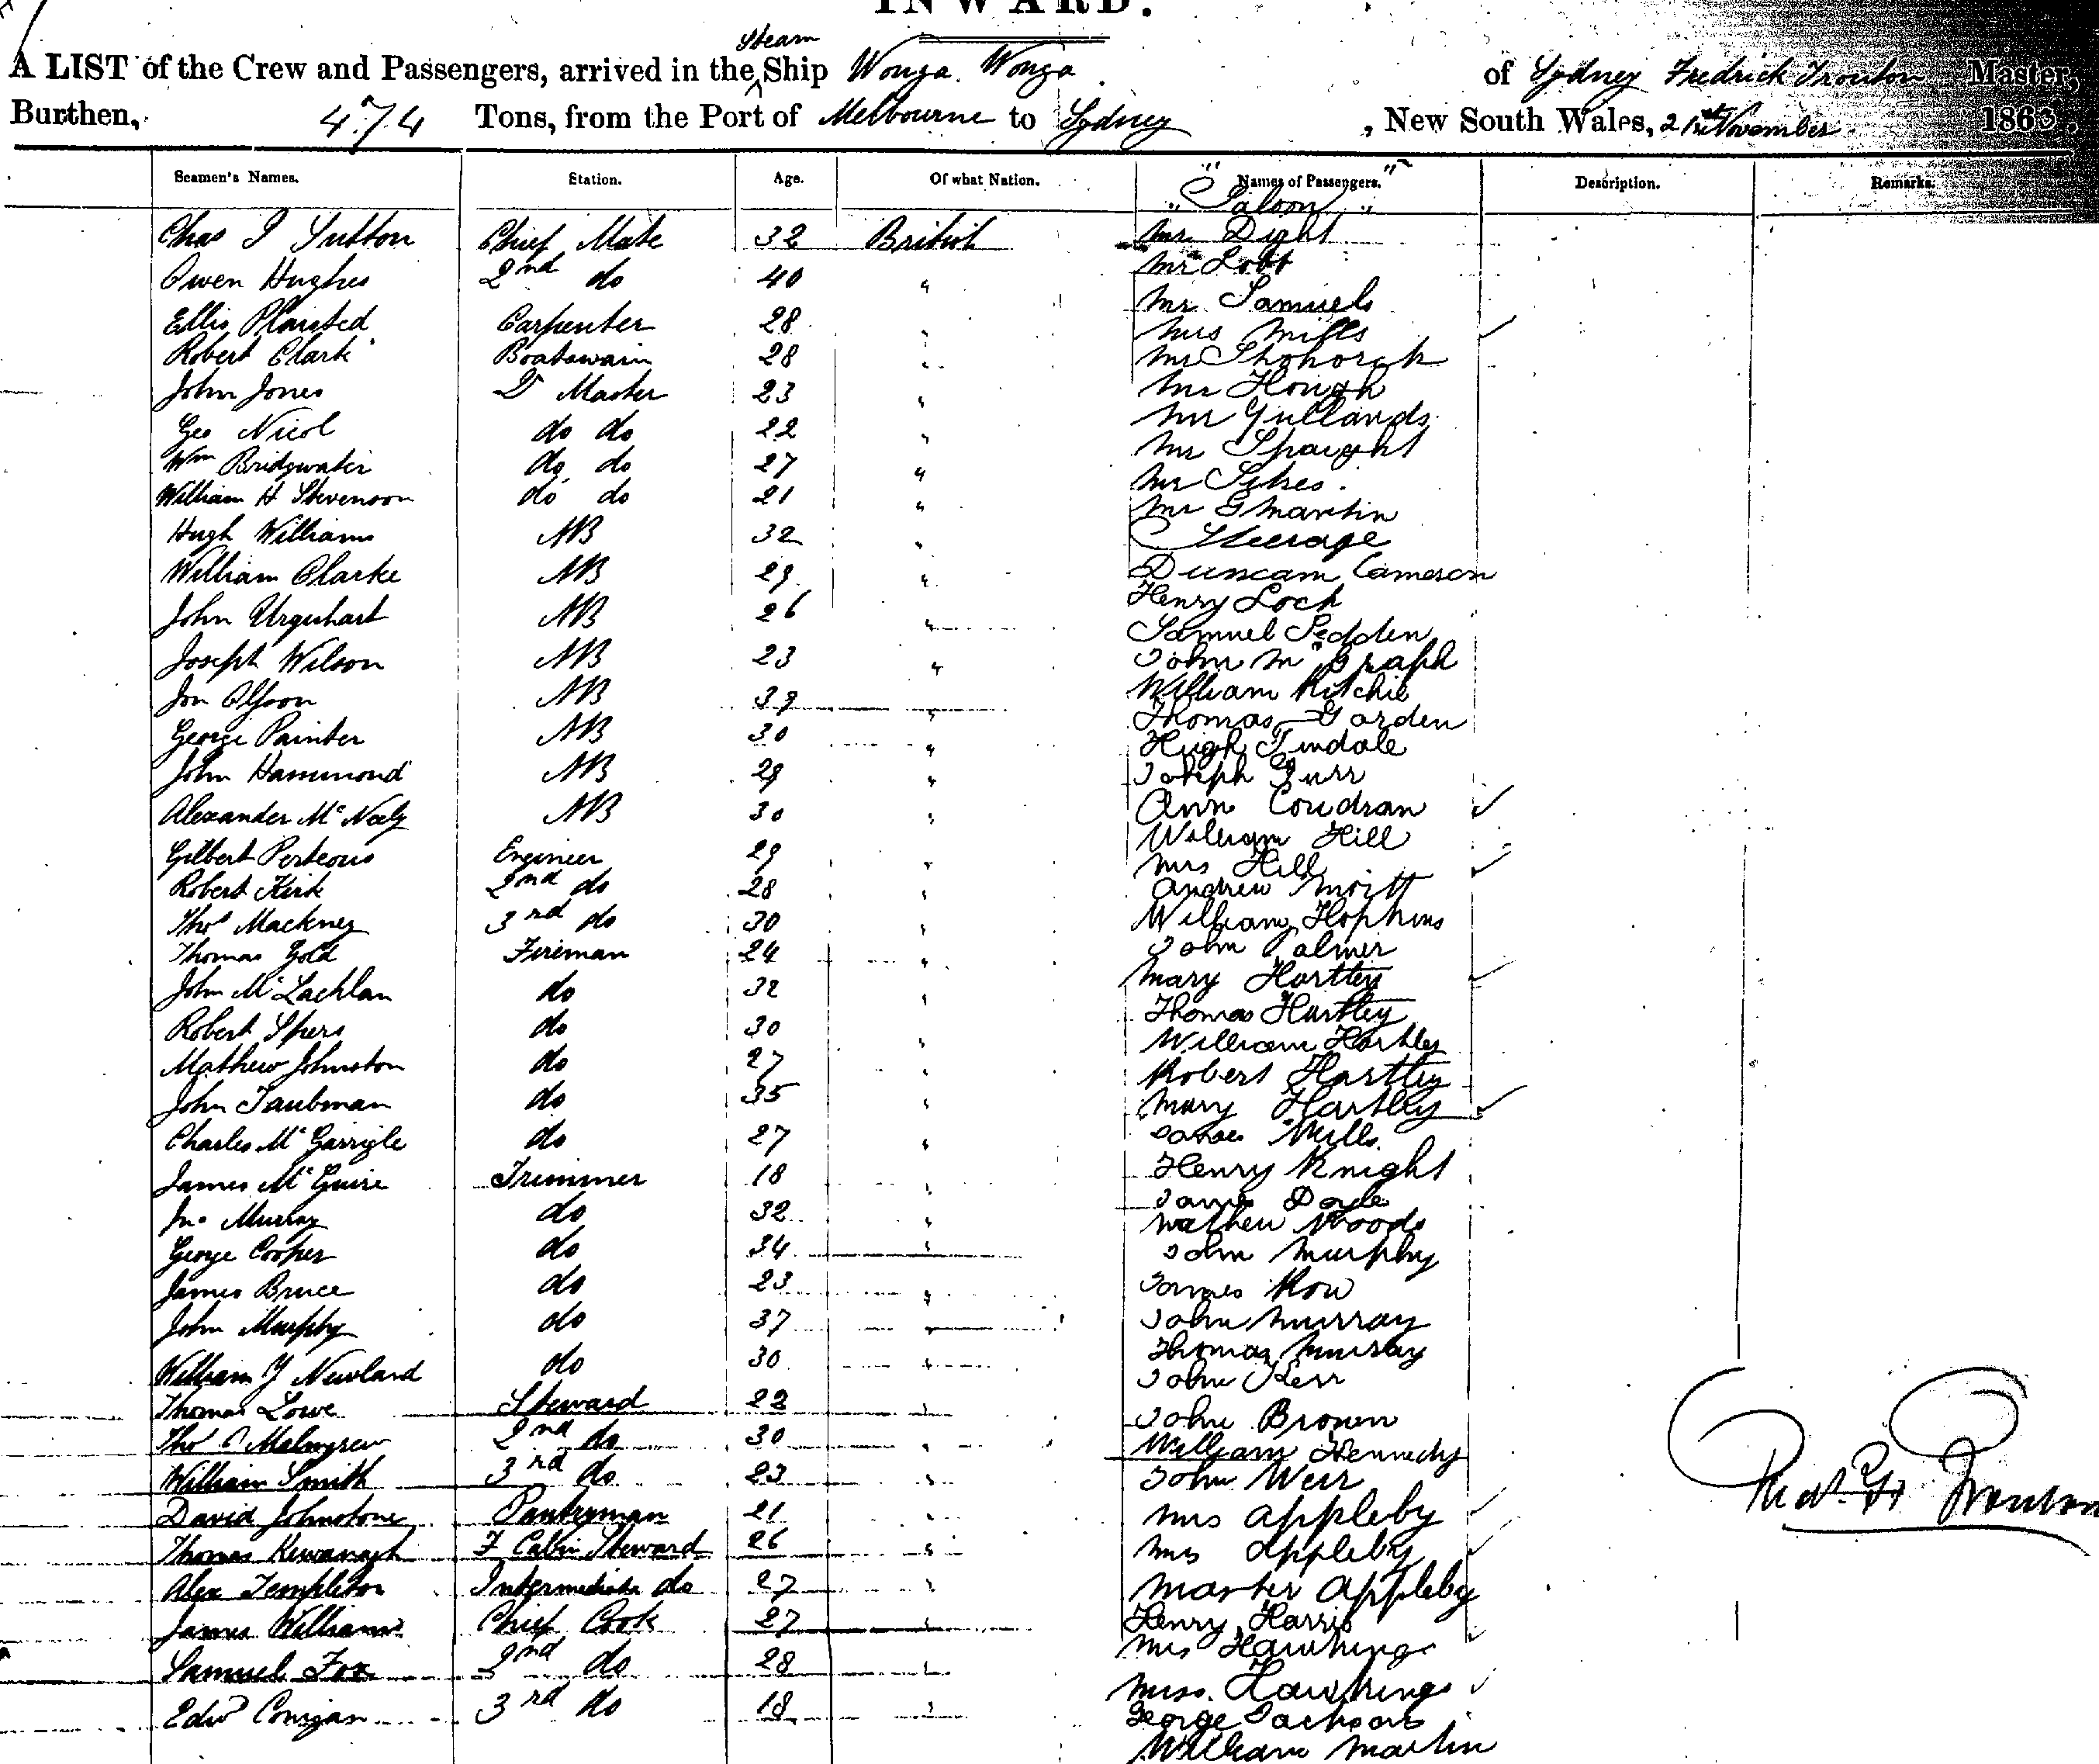 INWARD.
Steam
A LIST of the Crew and Passengers, arrived in the Ship Wonga Wonga of Sydney Fredrick Trouton Master,
Burthen, 474 Tons, from the Port of Melbourne to Sydney, New South Wales, 21st November 1863.
Seamen's Names. Station. Age. Of what Nation. Names of Passengers. Description. Remarks.
"Saloon"
Chas J Sutton Chief Mate 32 British Mr Dight
Owen Hughes 2nd do 40 " Mr Lobb
Ellis Plaisted Carpenter 28 " Mr Samuels
Robert Clark Boatswain 28 " Mills
John Jones Master 23 " Mr Hough
Geo Nicol do do 22 " Mr
Wm Bridgwater do do 27 " Mr Spaight
William H Stevenson do do 21 " Mr
Hugh Williams AB 32 " Mr G Martin
Steerage
William Clarke AB 29 " Duncam Cameron
John Urquhart AB 26 " Henry Loch
Samuel Pedden
Joseph Wilson AB 23 " John
Jon AB 39 " William Ritchie
George Painter AB 30 " Thomas Garden
Hugh Tindale
John Hammond AB 29 " Joseph Burr
Alexander McNeely AB 30 " Ann Condran
William Hill
Gilbert Porteous Engineer 29 " Mrs Hill
Robert Kirk 2nd do 28 " Andrew
Thos Mackney 3rd do 30 " William Hopkins
Thomas Gold Fireman 24 " John Palmer
John McLachlan do 32 " Mary Hartley
Robert Spers do 30 " Thomas Hartley
William Hartley
Mathew Johnston do 27 " Robert Hartley
John Taubman do 35 " Mary Hartley
Charles McGarrigle do 27 " Mills
James McGuire Trimmer 18 " Henry Knight
Jno Murray do 32 " Doyle
Mathew Woods
George Cooper do 34 " John Murphy
James Bruce do 23 " James Row
John Murphy do 37 " John Murray
William J Newland do 30 " Thomas Murray
John Kerr
Thomas Lowe Steward 22 " John Brown
Thos Malmgrew 2nd do 30 " William Kennedy
William Smith 3rd do 23 " John Weir
David Johnstone Pantryman 21 " Mrs Appleby
Thomas Kewanagh F Cabin Steward 26 " Appleby
Alex Templeton Intermediate do 27 " Master Appleby
James Williams Chief Cook 27 " Henry Harris
Samuel Fox 2nd do 28 " Mrs Hawkings
Edwd Corrigan 3rd do 18 " Miss Hawkings
George Jackson
William Martin
Trouton